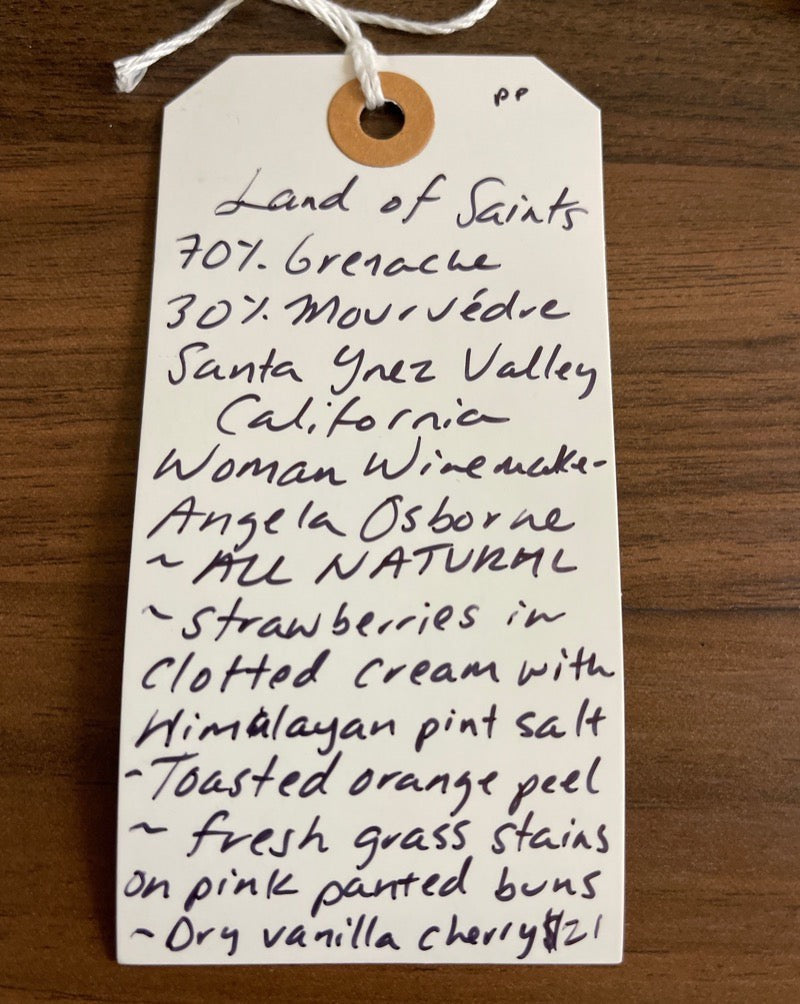 PP
Land of Saints
70% Grenache
30% Mourvédre
Santa Ynez Valley
California
Woman Winemaker
Angela Osborne
~ ALL NATURAL
~ strawberries in
Clotted cream with
Himalayan pint salt
- Toasted orange peel
~ fresh grass stains
on pink panted buns
~ Dry vanilla cherry $21